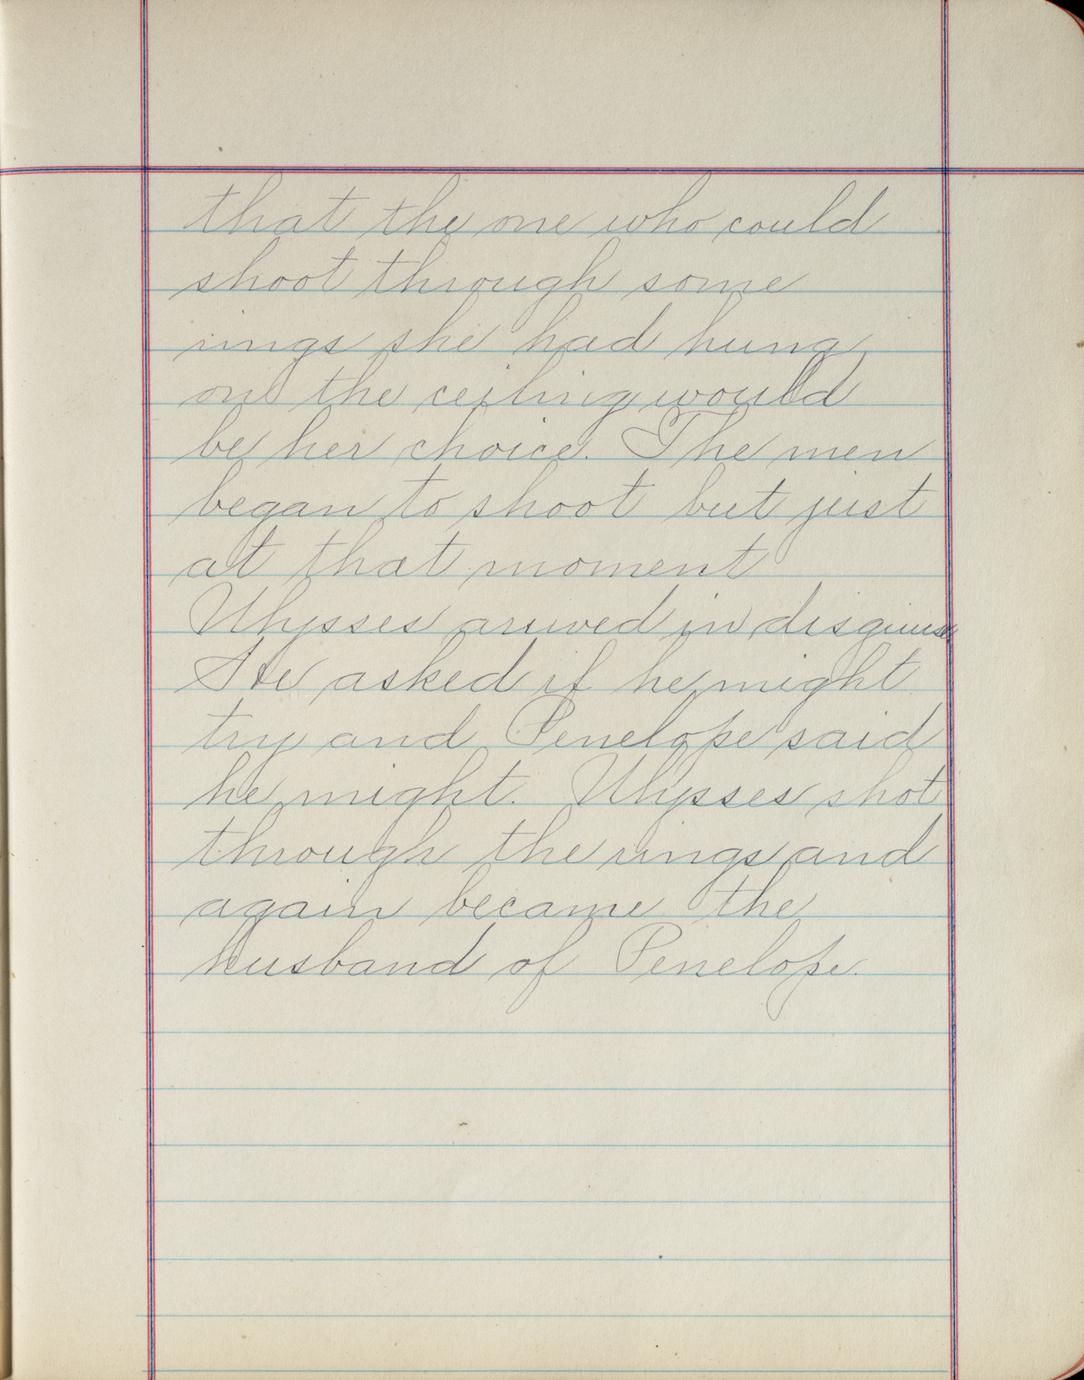 that the one who could
shoot through some
rings she had hung
on the ceiling would
be her choice. The men
began to shoot but just
at that moment
Ulysses arrived in disguise
He asked if he might
try and Penelope said
he might. Ulysses shot
through the rings and
again became the
husband of Penelope.